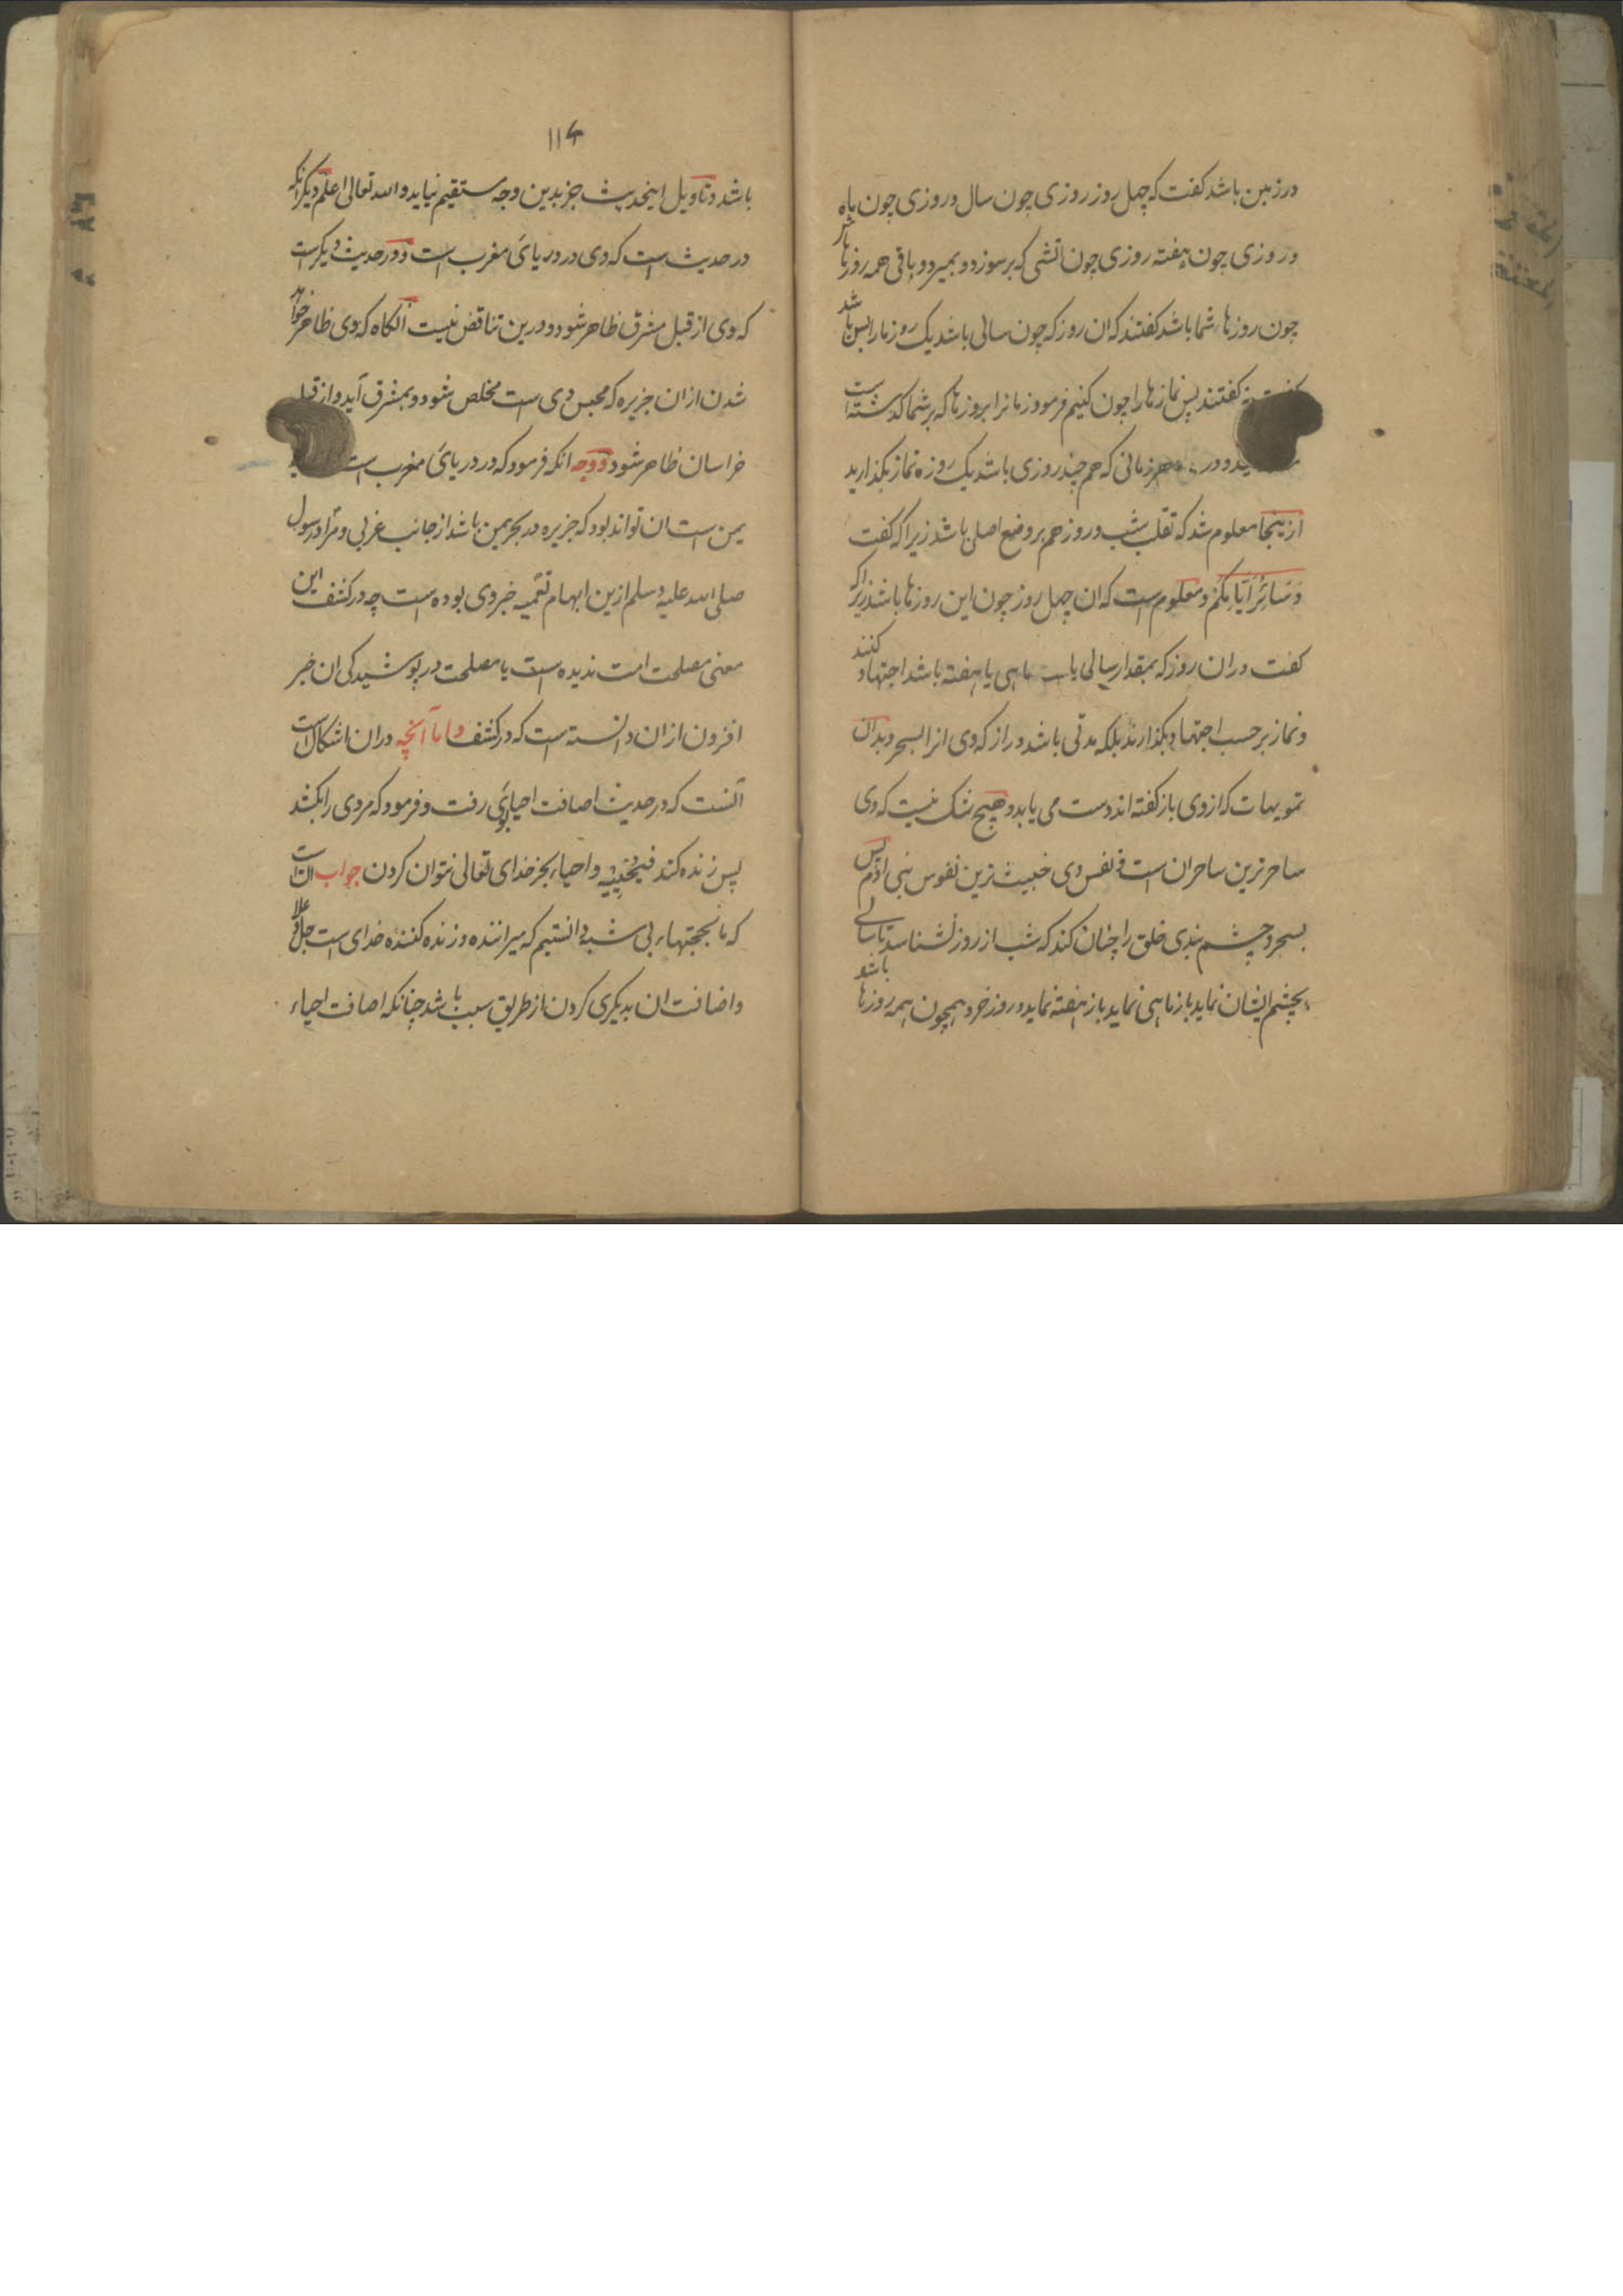 در زمین باشد گفت که چهل روز روزی چون سال و روزی چون ماه
و روزی چون هفته روزی چون اتشی که برسوزد و بمیرد و باقی همه روزها
چون روزهاء شما باشد گفتند که ان روز که چون سالی باشد یک روز ما را بس باشد
گفتند پس نمازها را چون کنیم فرمود زمانرا بروزها که بر شما گذشته است
زمانی که هم چند روزی باشد یک روزه نماز بگذارید
ازینجا معلوم شد که تقلب شب و روز هم بر وضع اصلی باشد زیرا که گفت
وَسَائِرُ اَیَّامِکُمْ و معلوم است که ان چهل روز چون این روزها باشد زیرا که
گفت در ان روز که بمقدار سالی یا ماهی یا هفته باشد اجتهاد کنند
و نماز بر حسب اجتهاد بگذارند بلکه مدتی باشد دراز که وی انرا بسحر و بدان
تمویهات که از وی باز گفته اند دست می یابد و هیچ شک نیست که وی
ساحرترین ساحران است و نفس وی خبیث ترین نفوس بنی ادم پس
بسحر و چشم بندی خلق را چنان کند که شب از روز نشناسد تا سالی
بچشم ایشان نماید باز ماهی نماید باز هفته نماید و روز خرد همچون همه روزها باشد
۱۱۶
باشد و تاویل اینحدیث جز بدین وجه مستقیم نیاید والله تعالی اعلم دیگر انکه
در حدیث است که وی در دریائی مغرب است و در حدیث دیگر است
که وی از قبل مشرق ظاهر شود و درین تناقض نیست انگاه که وی ظاهر خواهد
شدن از ان جزیره که محبس وی است مخلص شود و بمشرق آید و از قبل
خراسان ظاهر شود و وجه انکه فرمود که در دریائی مغرب است
یمن است ان تواند بود که جزیره در بحر یمن باشد از جانب غربی و مراد رسول
صلی الله علیه وسلم ازین ابهام تعمیه خبر وی بوده است چه در کشف این
معنی مصلحت امت ندیده است یا مصلحت در پوشیدگی ان خبر
افزون از ان دانسته است که در کشف و اما آنچه در ان اشکال است
آنست که در حدیث اضافت احیا بوی رفت و فرمود که مردی را بکشد
پس زنده کند فیحییه و احیاء بجز خدای تعالی نتوان کردن جواب ان است
که ما بحجتهاء بی شبه دانستیم که میراننده و زنده کننده خدای است جل و علا
و اضافت ان بدیگری کردن از طریق سبب باشد چنانکه اضافت احیاء